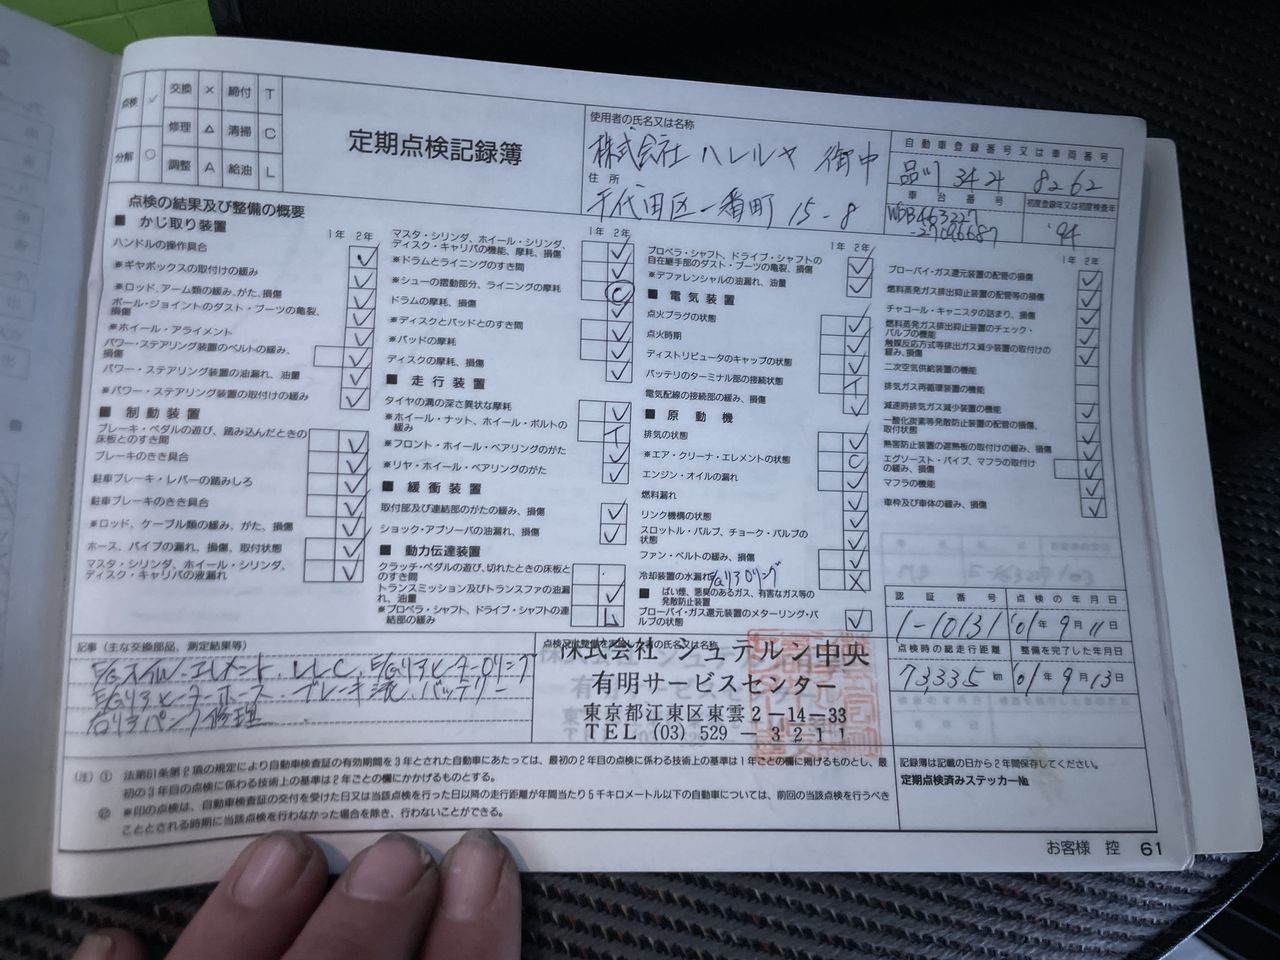 点検 ✓ 交換 × 締付 T
修理 △ 清掃 C
分解 ○ 調整 A 給油 L
定期点検記録簿
使用者の氏名又は名称
株式会社 ハレルヤ 御中
住所
千代田区一番町 15-8
自動車登録番号又は車両番号
品川 34 8262
車台番号
WDB463227
初度登録年又は初度検査年
'94
点検の結果及び整備の概要
■ かじ取り装置
1年 2年
ハンドルの操作具合
※ギヤボックスの取付けの緩み
※ロッド、アーム類の緩み、がた、損傷
ボール・ジョイントのダスト・ブーツの亀裂、損傷
※ホイール・アライメント
パワー・ステアリング装置のベルトの緩み、損傷
パワー・ステアリング装置の油漏れ、油量
※パワー・ステアリング装置の取付けの緩み
■ 制動装置
ブレーキ・ペダルの遊び、踏み込んだときの床板とのすき間
ブレーキのきき具合
駐車ブレーキ・レバーの踏みしろ
駐車ブレーキのきき具合
※ロッド、ケーブル類の緩み、がた、損傷
ホース、パイプの漏れ、損傷、取付状態
マスタ・シリンダ、ホイール・シリンダ、ディスク・キャリパの液漏れ
1年 2年
マスタ・シリンダ、ホイール・シリンダ、ディスク・キャリパの機能、摩耗、損傷
※ドラムとライニングのすき間
※シューの摺動部分、ライニングの摩耗
ドラムの摩耗、損傷
※ディスクとパッドとのすき間
※パッドの摩耗
ディスクの摩耗、損傷
■ 走行装置
タイヤの溝の深さ異状な摩耗
※ホイール・ナット、ホイール・ボルトの緩み
※フロント・ホイール・ベアリングのがた
※リヤ・ホイール・ベアリングのがた
■ 緩衝装置
取付部及び連結部のがたの緩み、損傷
ショック・アブソーバの油漏れ、損傷
■ 動力伝達装置
クラッチ・ペダルの遊び、切れたときの床板とのすき間
トランスミッション及びトランスファの油漏れ、油量
※プロペラ・シャフト、ドライブ・シャフトの連結部の緩み
1年 2年
プロペラ・シャフト、ドライブ・シャフトの自在継手部のダスト・ブーツの亀裂、損傷
※デファレンシャルの油漏れ、油量
■ 電気装置
点火プラグの状態
点火時期
ディストリビュータのキャップの状態
バッテリのターミナル部の接続状態
電気配線の接続部の緩み、損傷
■ 原動機
排気の状態
※エア・クリーナ・エレメントの状態
エンジン・オイルの漏れ
燃料漏れ
リンク機構の状態
スロットル・バルブ、チョーク・バルブの状態
ファン・ベルトの緩み、損傷
冷却装置の水漏れ
■ ばい煙、悪臭のあるガス、有害なガス等の発散防止装置
ブローバイ・ガス還元装置のメターリング・バルブの状態
1年 2年
ブローバイ・ガス還元装置の配管の損傷
燃料蒸発ガス排出抑止装置の配管等の損傷
チャコール・キャニスタの詰まり、損傷
燃料蒸発ガス排出抑止装置のチェック・バルブの機能
触媒反応方式等排出ガス減少装置の取付けの緩み、損傷
二次空気供給装置の機能
排気ガス再循環装置の機能
減速時排気ガス減少装置の機能
一酸化炭素等発散防止装置の配管の損傷、取付状態
熱害防止装置の遮熱板の取付けの緩み、損傷
エグゾースト・パイプ、マフラの取付けの緩み、損傷
マフラの機能
車枠及び車体の緩み、損傷
認証番号
1-10131
点検の年月日
01年 9月 11日
点検時の総走行距離
73,335 km
整備を完了した年月日
01年 9月 13日
記事（主な交換部品、測定結果等）
E/Gオイル・エレメント、LLC、E/GリアヒーターOリング
E/Gリアヒーターホース、ブレーキ液、バッテリー
右リアパンク修理
点検又は整備を実施した者の氏名又は名称
株式会社 シュテルン中央
有明サービスセンター
東京都江東区東雲2-14-33
TEL (03) 529-3211
（注）① 法第61条第2項の規定により自動車検査証の有効期間を3年とされた自動車にあたっては、最初の2年目の点検に係わる技術上の基準は1年ごとの欄に掲げるものとし、最
初の3年目の点検に係わる技術上の基準は2年ごとの欄にかかげるものとする。
② ※印の点検は、自動車検査証の交付を受けた日又は当該点検を行った日以降の走行距離が年間当たり5千キロメートル以下の自動車については、前回の当該点検を行うべき
こととされる時期に当該点検を行わなかった場合を除き、行わないことができる。
記録簿は記載の日から2年間保存してください。
定期点検済みステッカー№
お客様 控 61